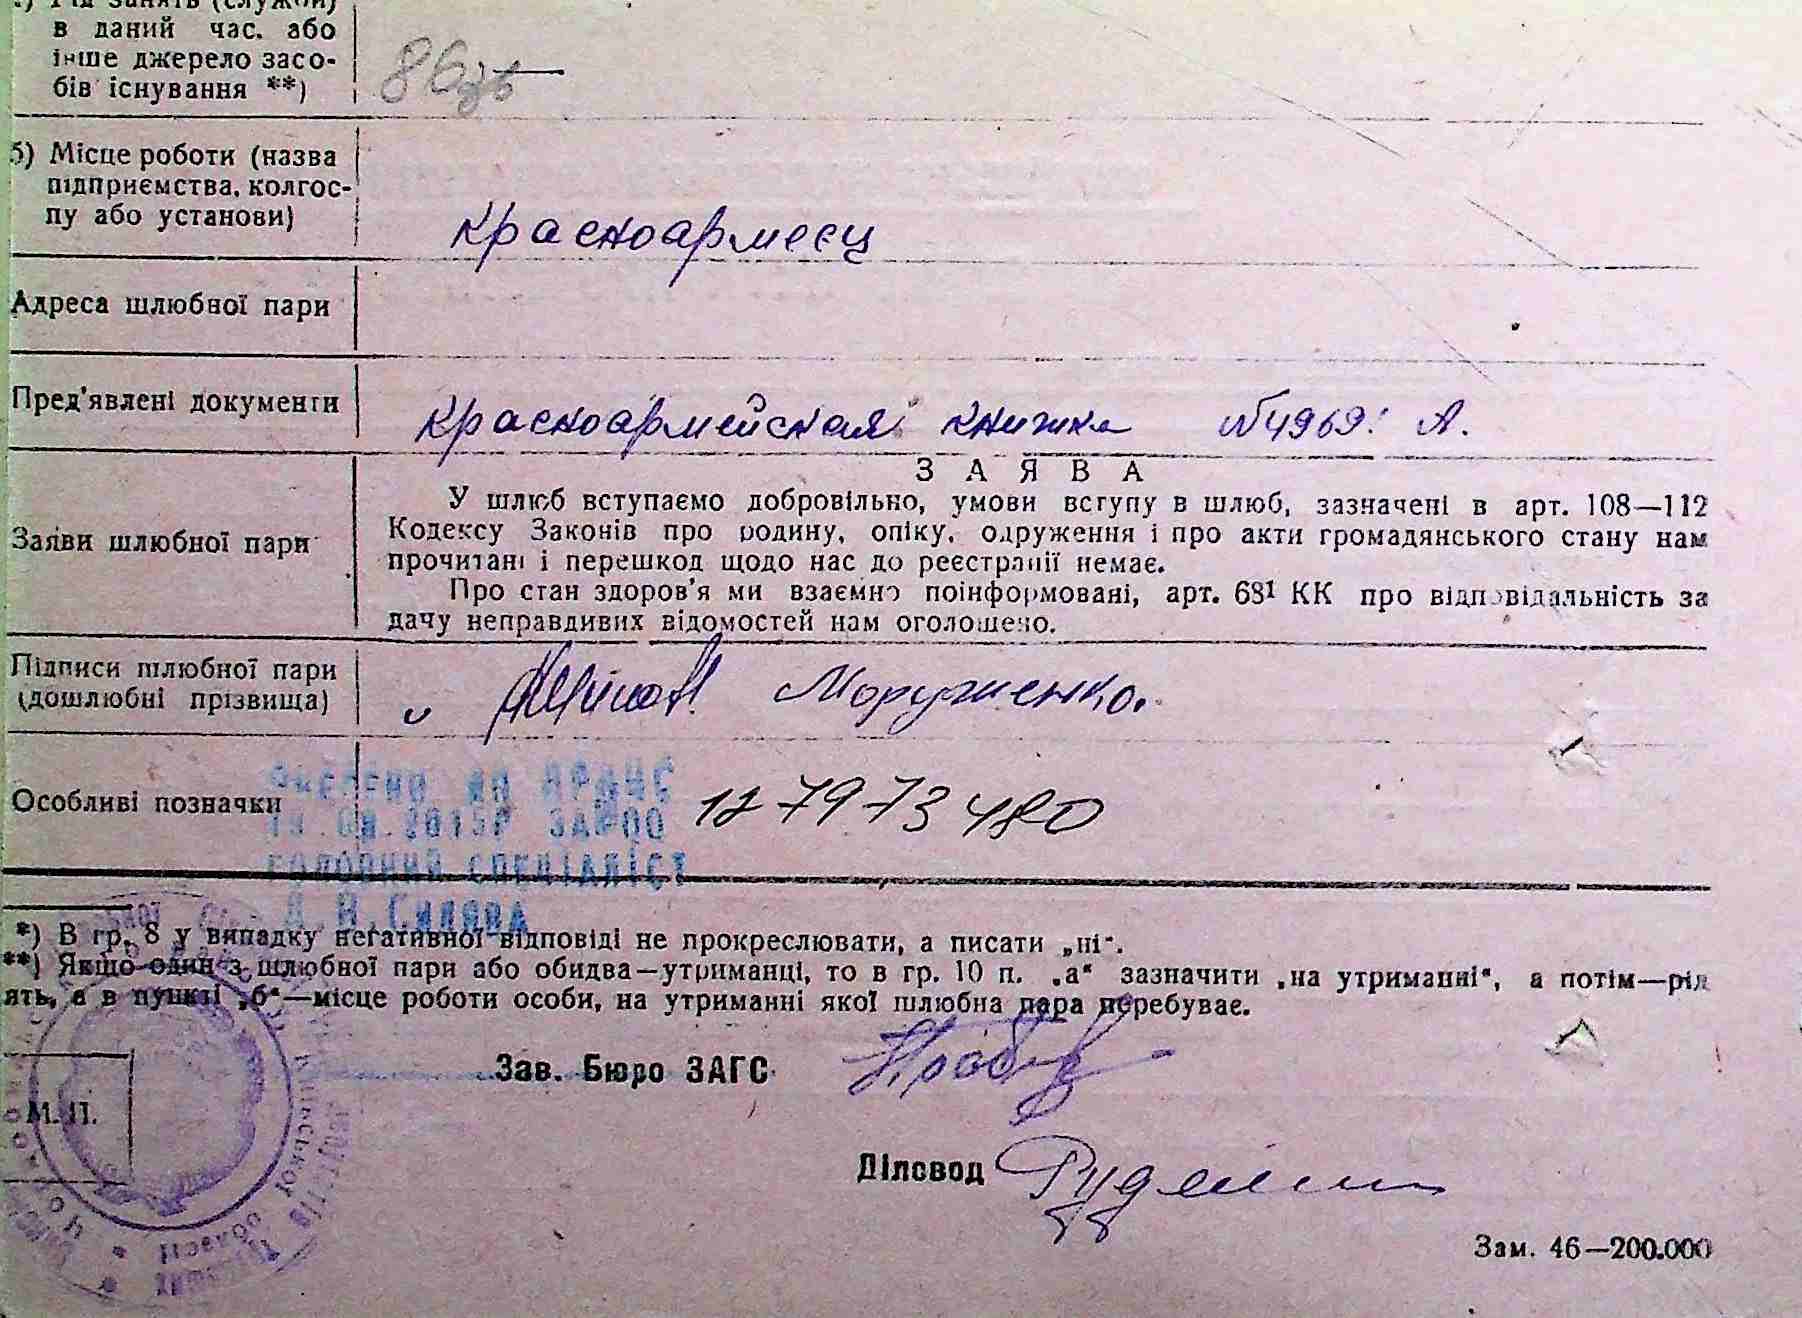 в даний час. або
інше джерело засо-
бів існування **)
86
б) Місце роботи (назва
підприємства, колгос-
пу або установи)
Красноармеец
Адреса шлюбної пари
Пред'явлені документи
Красноармейская книжка №4969. А.
ЗАЯВА
Заяви шлюбної пари
У шлюб вступаємо добровільно, умови вступу в шлюб, зазначені в арт. 108—112
Кодексу Законів про родину, опіку, одруження і про акти громадянського стану нам
прочитані і перешкод щодо нас до реєстрації немає.
Про стан здоров'я ми взаємно поінформовані, арт. 68¹ КК про відповідальність за
дачу неправдивих відомостей нам оголошено.
Підписи шлюбної пари
(дошлюбні прізвища)
Особливі позначки
ВНЕСЕНО ДО ДРАЦС
ГОЛОВНИЙ СПЕЦІАЛІСТ
*) В гр. 8 у випадку негативної відповіді не прокреслювати, а писати „ні“.
**) Якщо один з шлюбної пари або обидва—утриманці, то в гр. 10 п. „а“ зазначити „на утриманні“, а потім—рід
ять, а в пункті „б“—місце роботи особи, на утриманні якої шлюбна пара перебуває.
Зав. Бюро ЗАГС
М. П.
Київської області
Діловод
Зам. 46—200.000